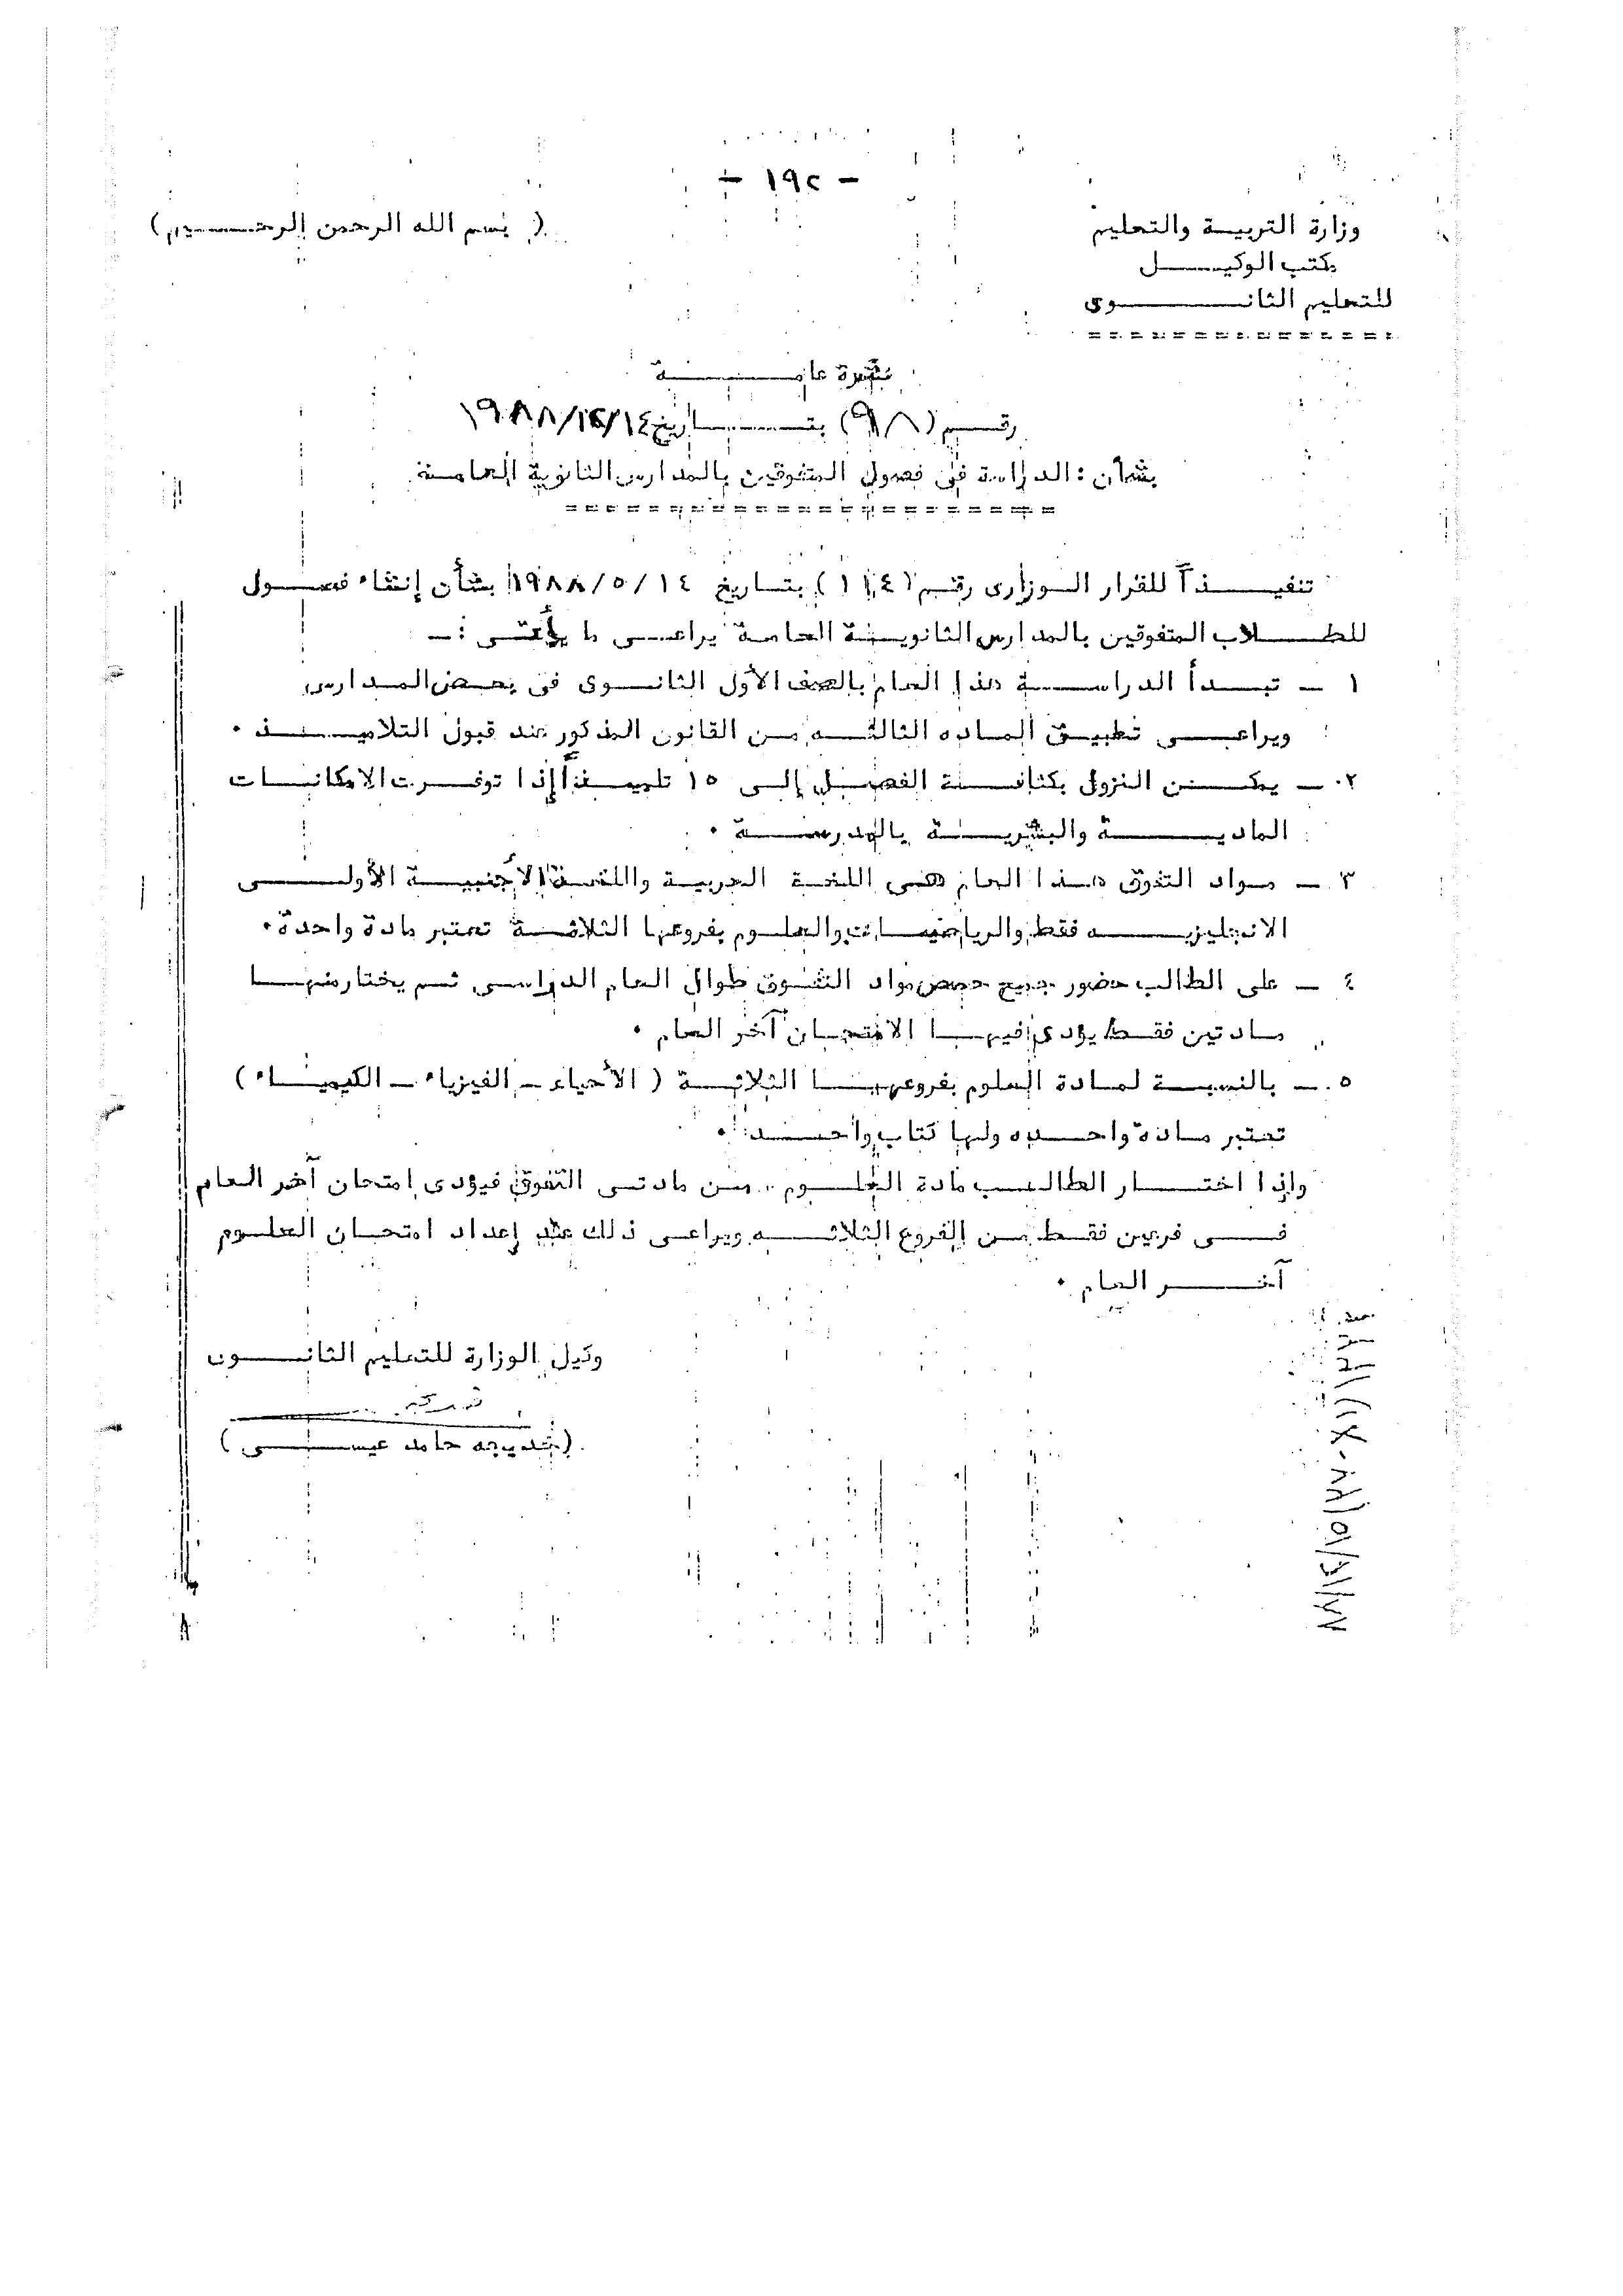 - ١٩٢ -
وزارة التربية والتعليم
( بسم الله الرحمن الرحيم )
مكتب الوكيل
للتعليم الثانوى
================
نشرة عامة
رقم ( ٩٨ ) بتاريخ ١٩٨٨/١٢/١٤
بشأن : الدراسة فى فصول المتفوقين بالمدارس الثانوية العامة
========================
تنفيذاً للقرار الوزارى رقم ( ١١٤ ) بتاريخ ١٤ / ٥ / ١٩٨٨ بشأن إنشاء فصول
للطلاب المتفوقين بالمدارس الثانوية العامة يراعى ما يأتى : -
١ - تبدأ الدراسة هذا العام بالصف الأول الثانوى فى بعض المدارس
ويراعى تطبيق الماده الثالثه من القانون المذكور عند قبول التلاميذ ٠
٢ - يمكن النزول بكثافة الفصل إلى ١٥ تلميذاً إذا توفرت الامكانات
المادية والبشرية بالمدرسة ٠
٣ - مواد التفوق هذا العام هى اللغة العربية واللغة الأجنبية الأولى
الانجليزيه فقط والرياضيات والعلوم بفروعها الثلاثة تعتبر مادة واحدة ٠
٤ - على الطالب حضور جميع حصص مواد التفوق طوال العام الدراسى ثم يختار منها
مادتين فقط يؤدى فيها الامتحان آخر العام ٠
٥ - بالنسبة لمادة العلوم بفروعها الثلاثة ( الأحياء - الفيزياء - الكيمياء )
تعتبر مادة واحده ولها كتاب واحد ٠
وإذا اختار الطالب مادة العلوم من مادتى التفوق فيؤدى امتحان آخر العام
فى فرعين فقط من الفروع الثلاثه ويراعى ذلك عند إعداد امتحان العلوم
آخر العام ٠
وكيل الوزارة للتعليم الثانوى
( خديجه حامد عيسى )